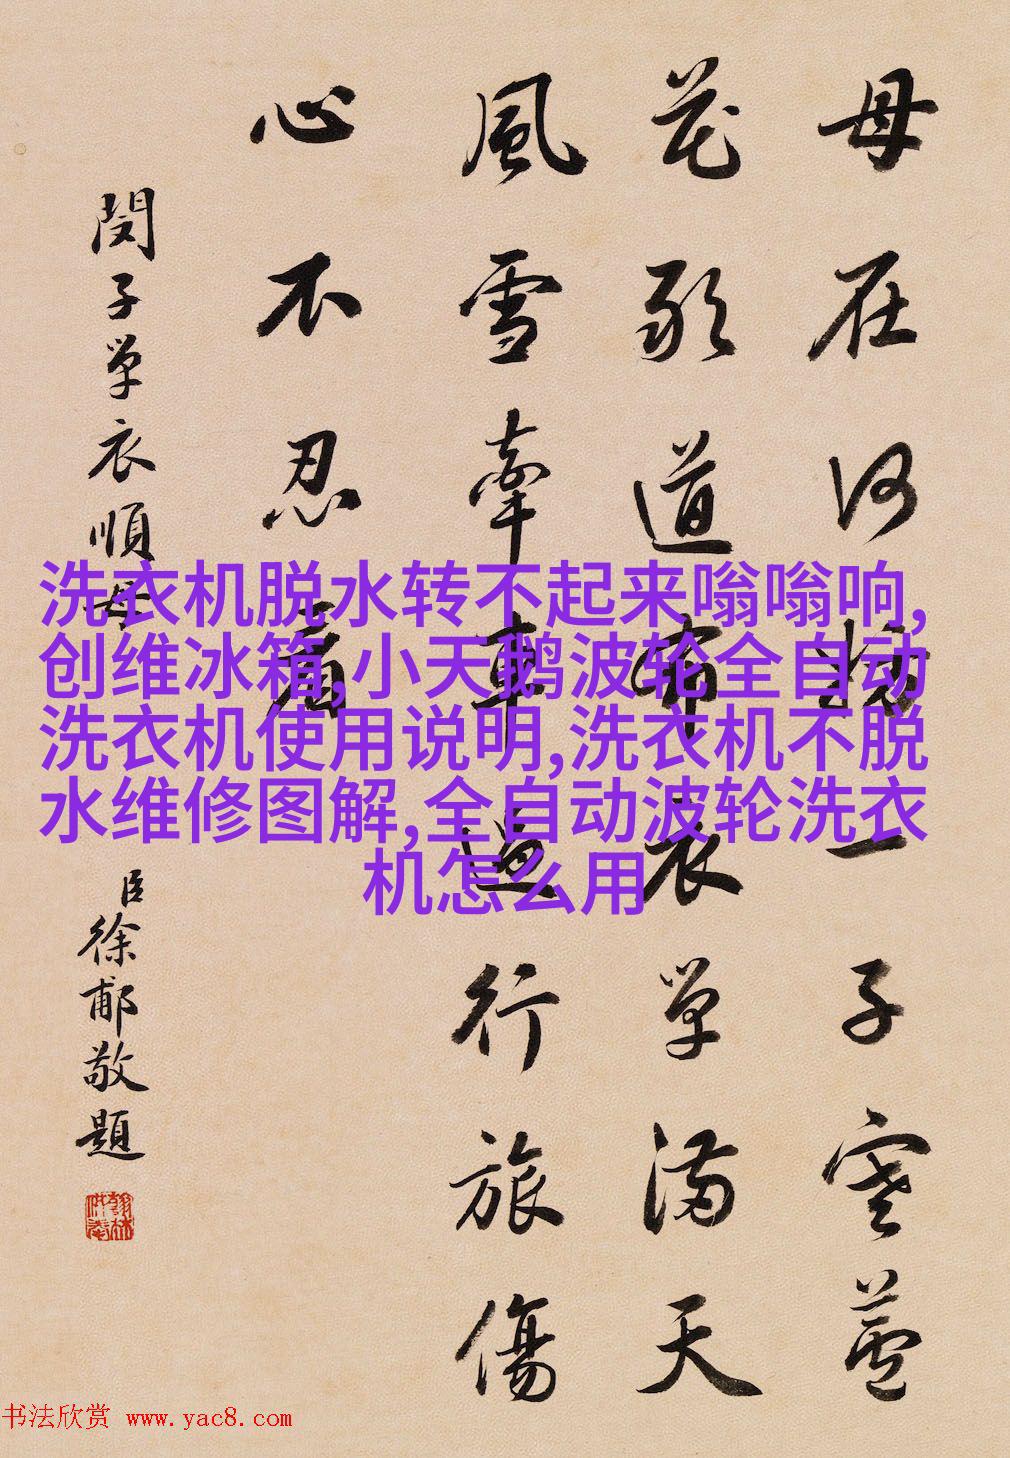 母在何妨一子寒蘆
花敢道布衣單滿天
風雪牽車過行旅傷
心不忍看
閔子單衣順母
臣徐郙敬題
洗衣机脱水转不起来嗡嗡响,
创维冰箱,小天鹅波轮全自动
洗衣机使用说明,洗衣机不脱
水维修图解,全自动波轮洗衣
机怎么用
书法欣赏 www.yac8.com